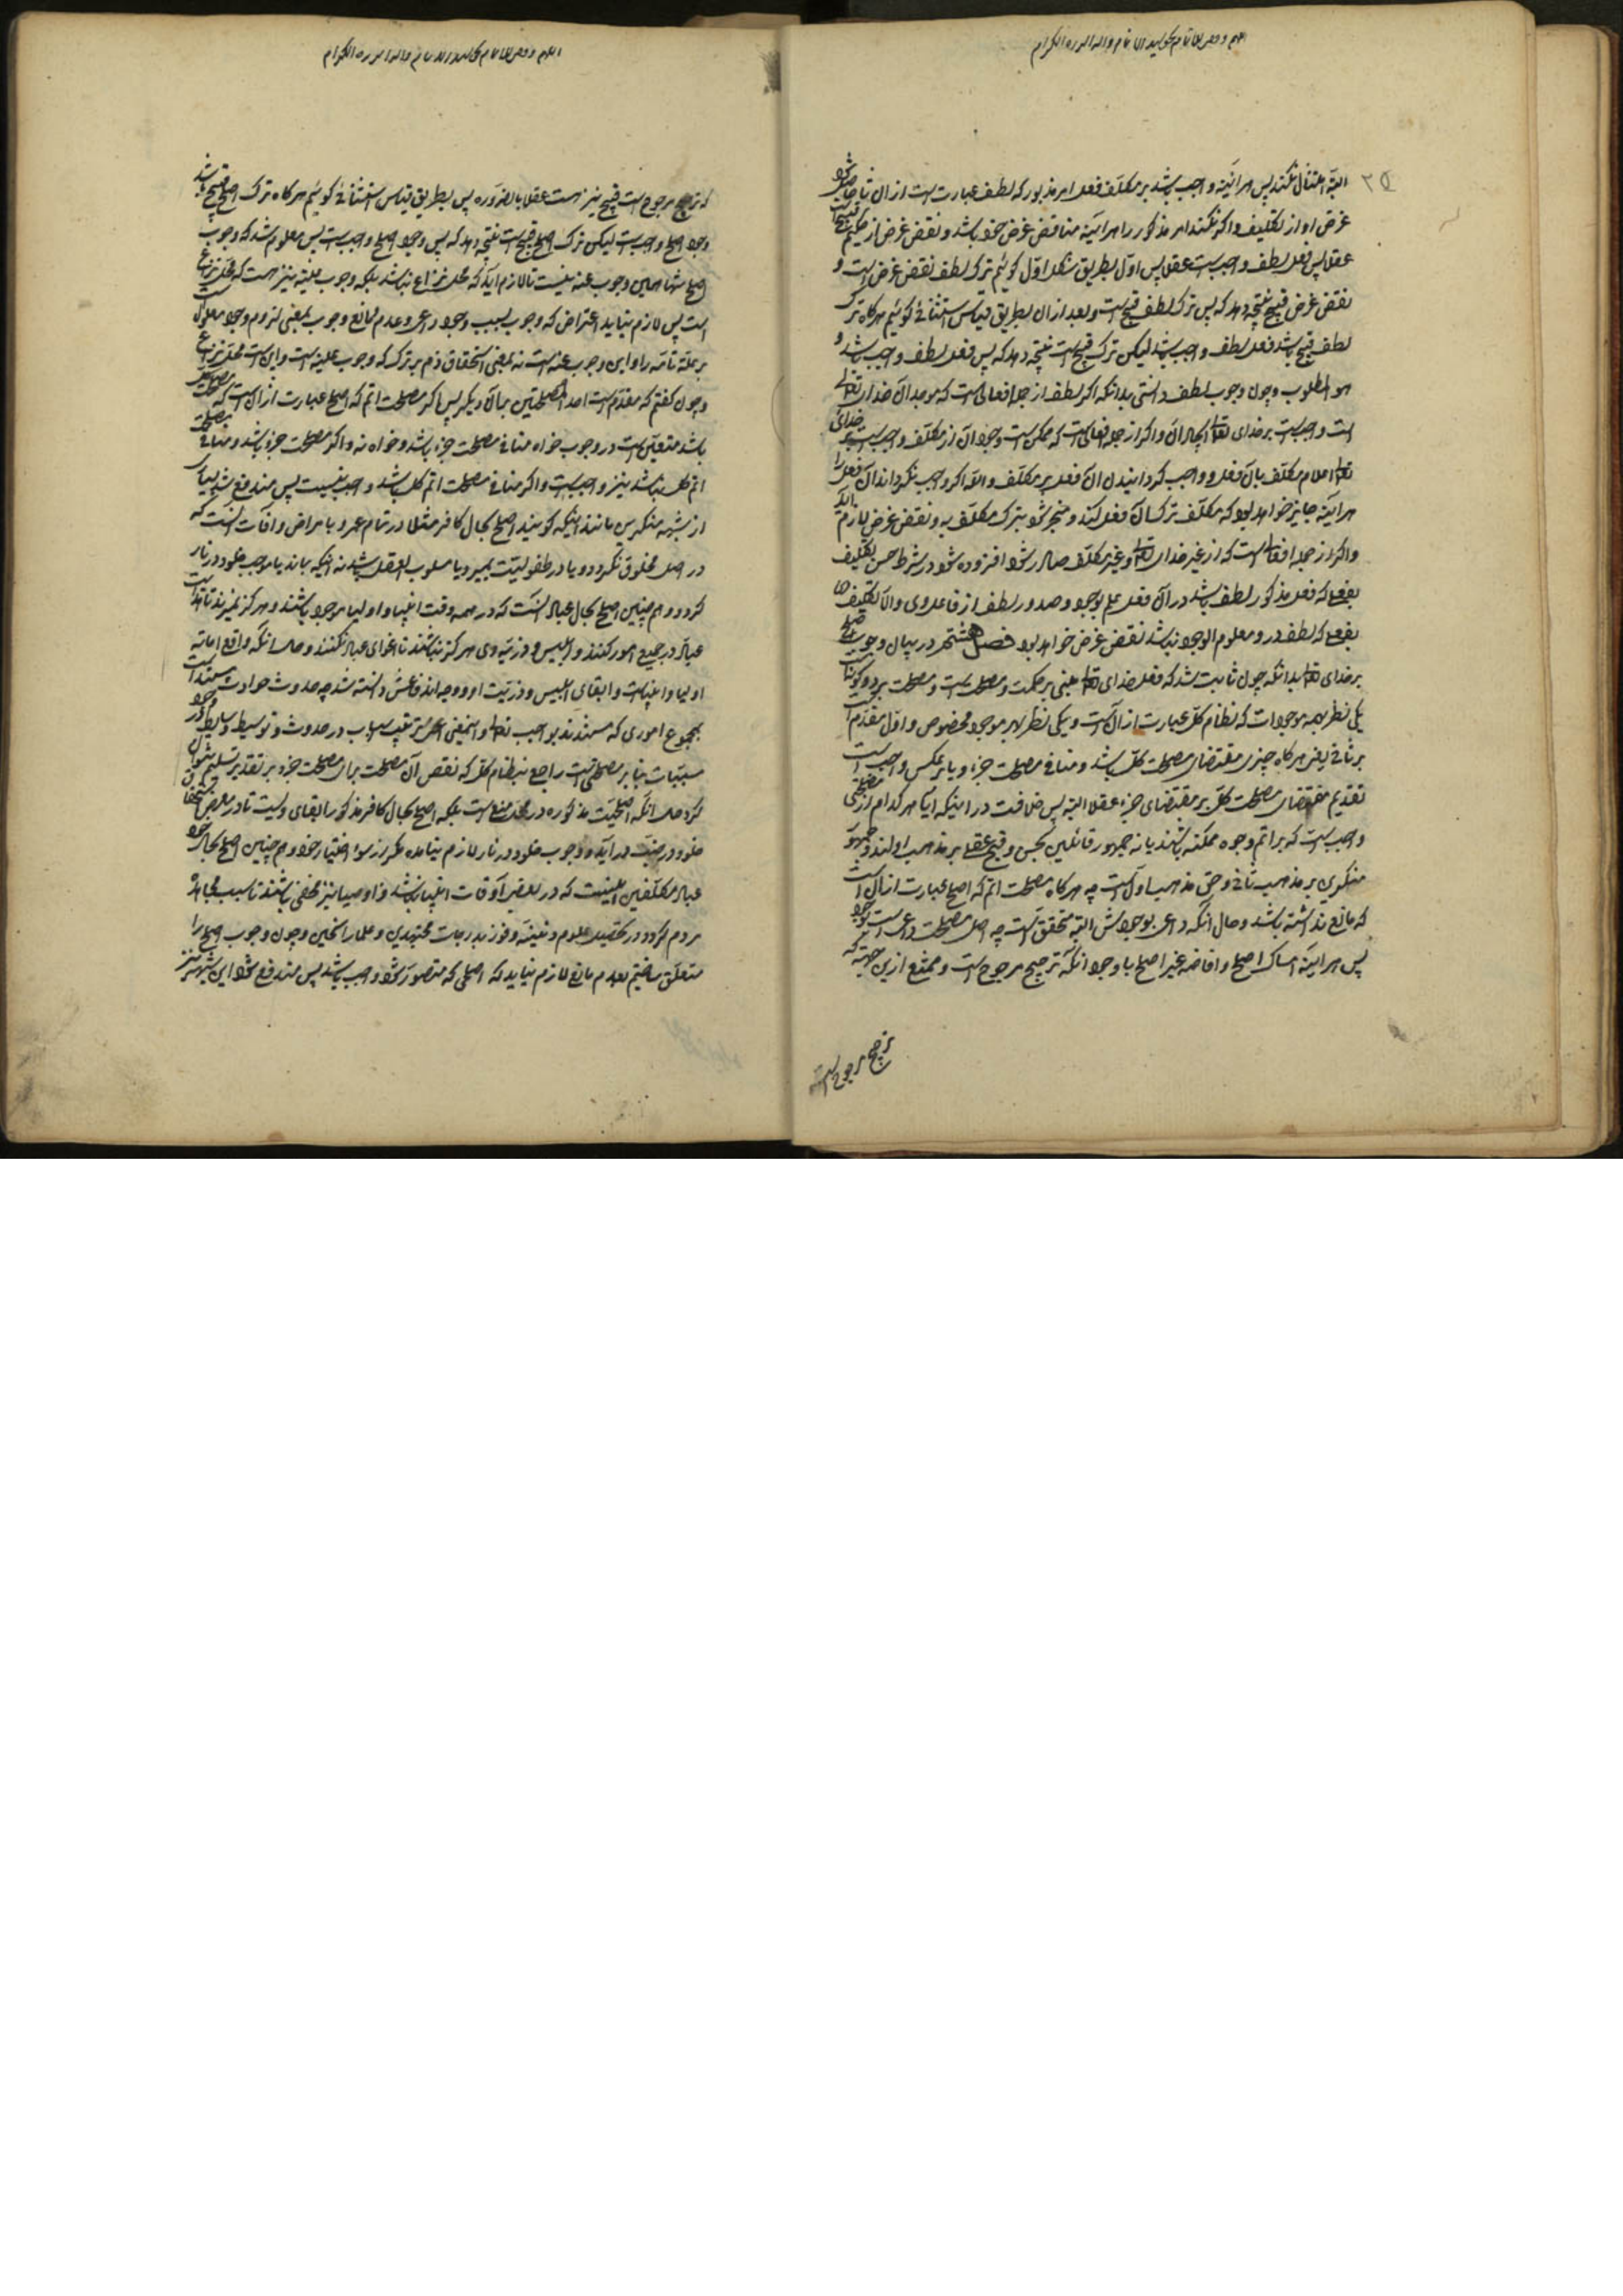 ٢٥
البته امتثال نکند پس هر آینه واجب باشد بر مکلف فعل امر مذبور که لطف عبارت است از ان تا حاصل شود
غرض او از تکلیف و اگر نکند امر مذکور را هر آینه مناقض غرض خود باشد و نقض غرض از حکیم قبیح است
عقلا پس فعل لطف واجب است عقلا پس اول بطریق شکل اول گوئیم ترک لطف نقض غرض است و
نقض غرض قبیح نتیجه دهد که پس ترک لطف قبیح است و بعد از ان بطریق قیاس استثنائی گوئیم هر گاه ترک
لطف قبیح باشد فعل لطف واجب باشد لیکن ترک قبیح است نتیجه دهد که پس فعل لطف واجب باشد و
هو المطلوب و چون وجوب لطف دانستی بدانکه اگر لطف از جمله افعالی است که موجد آن خدای تعالی
است واجب است بر خدای تعالی ایجاد آن و اگر از جمله افعالی است که ممکن است وجود آن از مکلف واجب است بر خدای
تعالی اعلام مکلف بآن فعل و واجب گردانیدن ان فعل بر مکلف و الا اگر واجب نگرداند آن فعل را
هر آینه جایز خواهد بود که مکلف ترک آن فعل کند و منجر شود بترک مکلف به و نقض غرض لازم آید
و اگر از جمله افعالی است که از غیر خدای تعالی و غیر مکلف صادر شود افزوده شود در شرط حسن تکلیف
بفعلی که فعل مذکور لطف باشد در آن فعل علم بوجود و صدور لطف از فاعل وی و الا تکلیف
بفعلی که لطف در و معلوم الوجود نباشد نقض غرض خواهد بود فصل هشتم در بیان وجوب اصلح
بر خدای تعالی بدانکه چون ثابت شد که فعل خدای تعالی مبنی بر حکمت و مصلحت است و مصلحت بر دو گونه است
یکی نظر بهمه موجودات که نظام کل عبارت از آن است و یکی نظر بهر موجود مخصوص و اول مقدم است
بر ثانی یعنی هر گاه چیزی مقتضای مصلحت کل باشد و منافی مصلحت جزء و یا بر عکس واجب است
تقدیم مقتضای مصلحت کل بر مقتضای جزء عقلا البته پس خلافست در اینکه آیا هر کدام از مصلحتی
واجب است که بر اتم وجوه ممکنه باشند یا نه جمهور قائلین بحسن و قبح عقلی بر مذهب اولند و جمهور
منکرین بر مذهب ثانی و حق مذهب اول است چه هر گاه مصلحت اتم که اصلح عبارت از آن است
که مانع نداشته باشد و حال آنکه داعی بوجودش البته متحقق است چه اصل مصلحت داعی است بوجود
پس هر آینه امساک اصلح و افاضه غیر اصلح با وجود آنکه ترجیح مرجوح است و ممتنع از این جهت که
ترجیح مرجوح است
که ترجیح مرجوح است قبیح نیز هست عقلا بالضروره پس بطریق قیاس استثنائی گوئیم هر گاه ترک اصلح قبیح باشد
وجود اصلح واجب است لیکن ترک اصلح قبیح است نتیجه دهد که پس وجود اصلح واجب است پس معلوم شد که وجوب
اصلح تنها همین وجوب عنه نیست تا لازم آید که محل نزاع نباشد بلکه وجوب علیه نیز هست که محل نزاع
است پس لازم نیاید اعتراض که وجوب بسبب وجود داعی و عدم مانع وجوب بمعنی لزوم وجود معلول است
مر علة تامه را و این وجوب عنه است نه بمعنی استحقاق ذم بر ترک که وجوب علیه است و این است محل نزاع
و چون گفتیم که مقدم است احد المصلحتین بر آن دیگر پس اگر مصلحت اتم که اصلح عبارت از آن است که مصلحت کل
باشد متعین است در وجوب خواه منافی مصلحت جزء باشد و خواه نه و اگر مصلحت جزء باشد و منافی مصلحت
اتم کل نباشد نیز واجب است و اگر منافی مصلحت اتم کل باشد واجب نیست پس مندفع شد بسیاری
از شبهه منکرین مانند اینکه گویند اصلح بحال کافر مثلا در تمام عمر و بامراض و آفات آنست که
در اصل مخلوق نگردد و یا در طفولیت بمیرد و یا مسلوب العقل باشد نه اینکه بماند تا موجب خلود در نار
گردد و هم چنین اصلح بحال عباد آنست که در همه وقت انبیا و اولیا موجود باشند و هرگز نمیرند تا هدایت
عباد در جمیع امور کنند و ابلیس و ذریه وی هرگز نباشند تا اغوای عباد نکنند و حال آنکه واقع اماته
اولیا و انبیاست و ابقای ابلیس و ذریت او و وجه اندفاعش دانسته شد چه حدوث حوادث مستند است
بمجموع اموری که مستندند بواجب تعالی و اینمعنی اعنی ترتیب اسباب در حدوث و توسیط وسایط در وجود
مسببات بنابر مصلحتی است راجع بنظام کل که نقص آن مصلحت برای مصلحت جزء بر تقدیر تسلیم نتوان
کرد حال آنکه اصلحیت مذکوره در محل منع است بلکه اصلح بحال کافر مذکور ابقای ویست تا در معرض استحقاق
خلود در جنت در آید و وجوب خلود در نار لازم نیامده مگر از سوء اختیار خود و هم چنین اصلح بحال
عباد مکلفین اینست که در بعضی اوقات انبیا نباشند و اوصیا نیز مخفی باشند تا سبب مجاهده
مردم گردد در تحصیل علوم دینیه و فوز بدرجات مجتهدین و علما راسخین و چون وجوب اصلح را
متعلق ساختیم بعدم مانع لازم نیاید که اصلحی که متصور شود واجب باشد پس مندفع شود این شبهه نیز